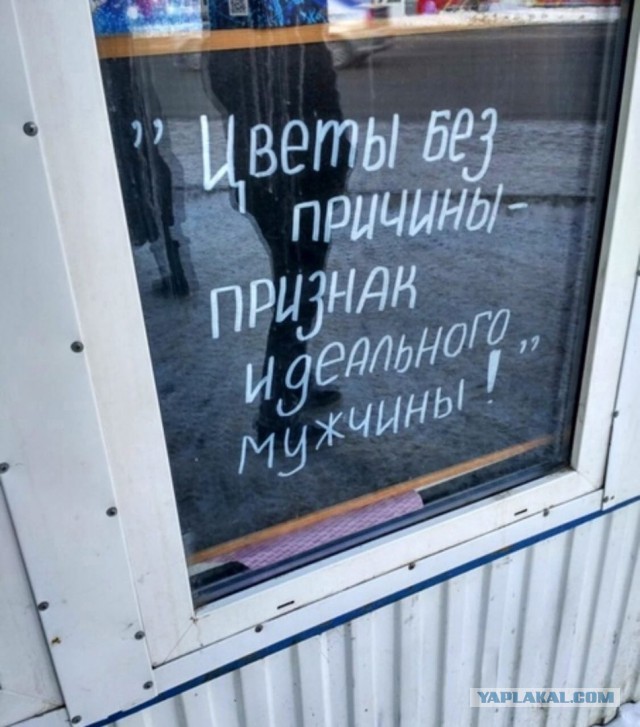 " Цветы без
причины-
признак
идеального
мужчины! "
YAPLAKAL.COM